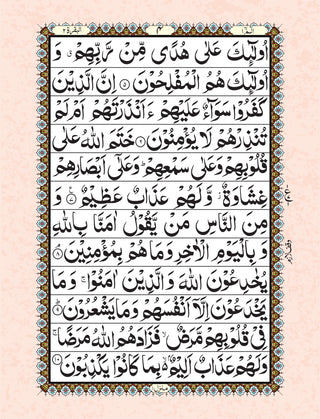 البقرة ٢
٤
الٓمّٓ ١
اُولٰٓئِكَ عَلٰى هُدًى مِّنْ رَّبِّهِمْ ۙ وَ
اُولٰٓئِكَ هُمُ الْمُفْلِحُوْنَ ۝٥ اِنَّ الَّذِيْنَ
كَفَرُوْا سَوَآءٌ عَلَيْهِمْ ءَاَنْذَرْتَهُمْ اَمْ لَمْ
تُنْذِرْهُمْ لَا يُؤْمِنُوْنَ ۝٦ خَتَمَ اللّٰهُ عَلٰى
قُلُوْبِهِمْ وَعَلٰى سَمْعِهِمْ ؕ وَعَلٰٓى اَبْصَارِهِمْ
غِشَاوَةٌ ؗ وَّلَهُمْ عَذَابٌ عَظِيْمٌ ۝٧ وَ
مِنَ النَّاسِ مَنْ يَّقُوْلُ اٰمَنَّا بِاللّٰهِ
وَ بِالْيَوْمِ الْاٰخِرِ وَمَا هُمْ بِمُؤْمِنِيْنَ ۝٨
يُخٰدِعُوْنَ اللّٰهَ وَ الَّذِيْنَ اٰمَنُوْا ۚ وَمَا
يَخْدَعُوْنَ اِلَّاۤ اَنْفُسَهُمْ وَمَا يَشْعُرُوْنَ ۝٩
فِيْ قُلُوْبِهِمْ مَّرَضٌ ۙ فَزَادَهُمُ اللّٰهُ مَرَضًا ۚ
وَلَهُمْ عَذَابٌ اَلِيْمٌۢ ۙ بِمَا كَانُوْا يَكْذِبُوْنَ ۝١٠